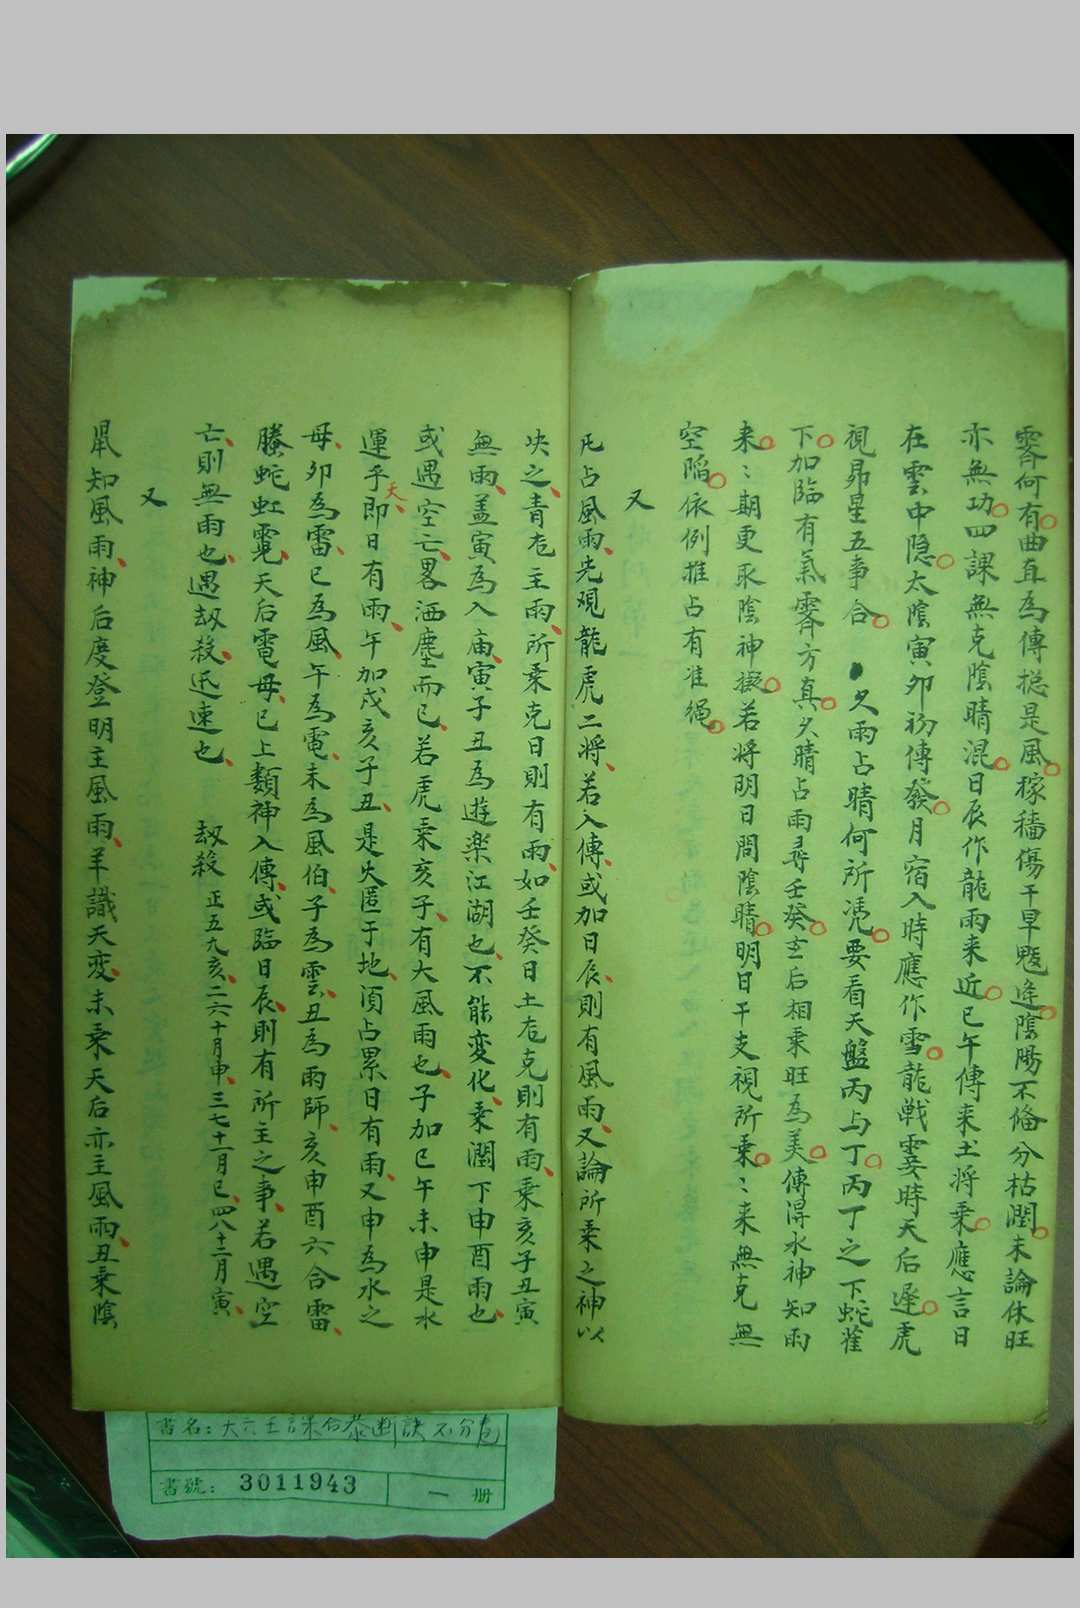 霽何有曲直為傳摠是風稼穡傷干旱魃逢陰陽不俻分枯潤末論休旺
亦無功四課無克陰晴混日辰作龍雨来近巳午傳来土將乗應言日
在雲中隐太陰寅夘初傳發月宿入時應作雪龍戦霎時天后遲虎
視昴星五事合 久雨占晴何所凴要看天盤丙与丁丙丁之下蛇雀
下加臨有氣霽方真久晴占雨尋壬癸玄后相乗旺為美傳得水神知雨
来〻期更取陰神擬若將明日問陰晴明日干支視所乗〻来無克無
空陷依例推占有准绳
又
凢占風雨先观龍虎二將若入傳或加日辰則有風雨又論所乗之神以
决之青虎主雨所乗克日則有雨如壬癸日土虎克則有雨乗亥子丑寅
無雨盖寅為入庙寅子丑為遊楽江湖也不能変化乗潤下申酉雨也
或遇空亡畧洒塵而已若虎乗亥子有大風雨也子加巳午未申是水
運乎天即日有雨午加戍亥子丑是火匿于地湏占累日有雨又申為水之
母夘為雷巳為風午為電未為風伯子為雲丑為雨師亥申酉六合雷
螣蛇虹霓天后電母已上類神入傳或臨日辰則有所主之事若遇空
亡則無雨也遇刼殺迅速也 刼殺 正五九亥二六十月申三七十一月巳四八十二月寅
又
鼠知風雨神后度登明主風雨羊識天变未乗天后亦主風雨丑乗陰
書名：大六壬課合叅断訣不分卷
書號：3011943 一 册